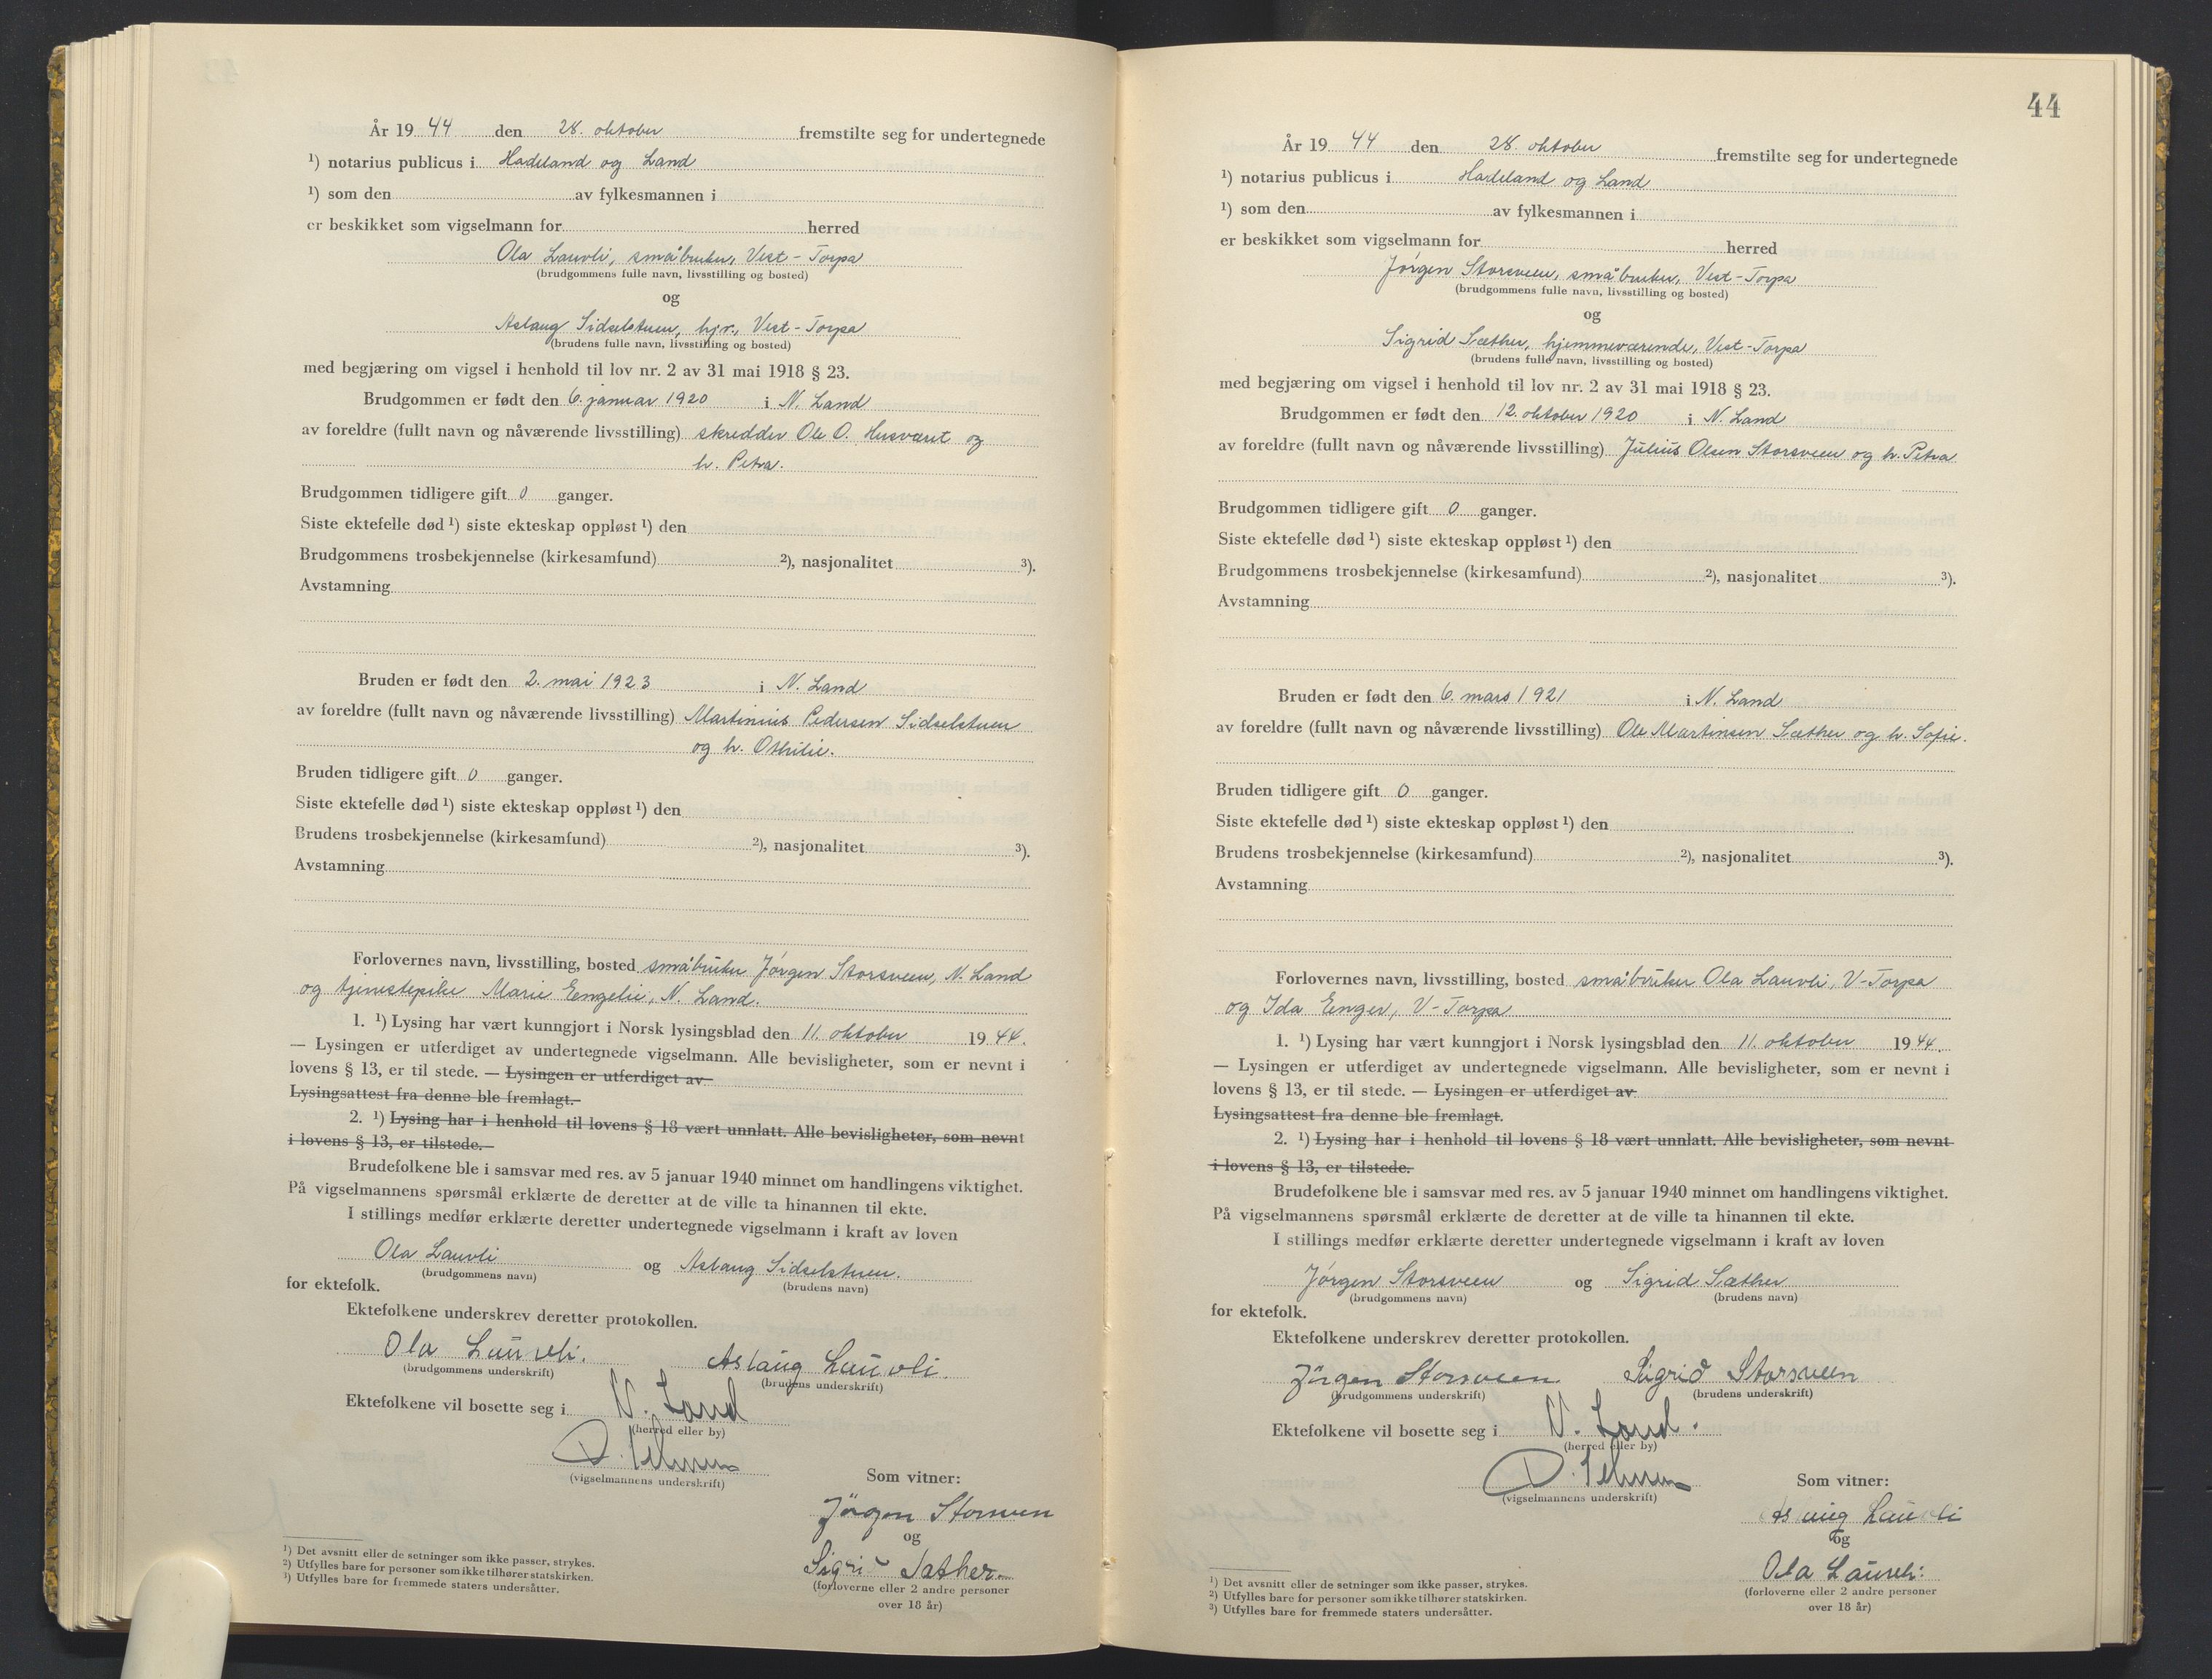 År 19 44 den 28. oktober fremstilte seg for undertegnede
¹) notarius publicus i Hadeland og Land
¹) som den av fylkesmannen i
er beskikket som vigselmann for herred
Ola Lauvli, småbruker, Vest-Torpa
(brudgommens fulle navn, livsstilling og bosted)
og
Aslaug Sidselstuen, hjv., Vest-Torpa
(brudens fulle navn, livsstilling og bosted)
med begjæring om vigsel i henhold til lov nr. 2 av 31 mai 1918 § 23.
Brudgommen er født den 6. januar 1920 i N. Land
av foreldre (fullt navn og nåværende livsstilling) skredder Ole O. og
h. Petra.
Brudgommen tidligere gift 0 ganger.
Siste ektefelle død ¹) siste ekteskap oppløst ¹) den
Brudgommens trosbekjennelse (kirkesamfund) ²), nasjonalitet ³).
Avstamning
Bruden er født den 2. mai 1923 i N. Land
av foreldre (fullt navn og nåværende livsstilling) Martinius Pedersen Sidselstuen
og h. Othilie.
Bruden tidligere gift 0 ganger.
Siste ektefelle død ¹) siste ekteskap oppløst ¹) den
Brudens trosbekjennelse (kirkesamfund) ²), nasjonalitet ³).
Avstamning
Forlovernes navn, livsstilling, bosted småbruker Jørgen Storsveen, N. Land
og tjenestepike Marie Engelie, N. Land.
1. ¹) Lysing har vært kunngjort i Norsk lysingsblad den 11. oktober 19 44.
— Lysingen er utferdiget av undertegnede vigselmann. Alle bevisligheter, som er nevnt i
lovens § 13, er til stede. — Lysingen er utferdiget av
Lysingsattest fra denne ble fremlagt.
2. ¹) Lysing har i henhold til lovens § 18 vært unnlatt. Alle bevisligheter, som nevnt
i lovens § 13, er tilstede.
Brudefolkene ble i samsvar med res. av 5 januar 1940 minnet om handlingens viktighet.
På vigselmannens spørsmål erklærte de deretter at de ville ta hinannen til ekte.
I stillings medfør erklærte deretter undertegnede vigselmann i kraft av loven
Ola Lauvli og Aslaug Sidselstuen.
(brudgommens navn) (brudens navn)
for ektefolk.
Ektefolkene underskrev deretter protokollen.
Ola Lauvli. Aslaug Lauvli.
(brudgommens underskrift) (brudens underskrift)
Ektefolkene vil bosette seg i N. Land
(herred eller by)
(vigselmannens underskrift)
Som vitner:
Jörgen Storsveen
og
Sigrid Sæther
(forloverne eller 2 andre personer
over 18 år)
¹) Det avsnitt eller de setninger som ikke passer, strykes.
²) Utfylles bare for personer som ikke tilhører statskirken.
³) Utfylles bare for fremmede staters undersåtter.
44
År 19 44 den 28. oktober fremstilte seg for undertegnede
¹) notarius publicus i Hadeland og Land
¹) som den av fylkesmannen i
er beskikket som vigselmann for herred
Jørgen Storsveen, småbruker, Vest-Torpa
(brudgommens fulle navn, livsstilling og bosted)
og
Sigrid Sæther, hjemmeværende, Vest-Torpa
(brudens fulle navn, livsstilling og bosted)
med begjæring om vigsel i henhold til lov nr. 2 av 31 mai 1918 § 23.
Brudgommen er født den 12. oktober 1920 i N. Land
av foreldre (fullt navn og nåværende livsstilling) Julius Olsen Storsveen og h. Petra
Brudgommen tidligere gift 0 ganger.
Siste ektefelle død ¹) siste ekteskap oppløst ¹) den
Brudgommens trosbekjennelse (kirkesamfund) ²), nasjonalitet ³).
Avstamning
Bruden er født den 6. mars 1921 i N. Land
av foreldre (fullt navn og nåværende livsstilling) Ole Martinsen Sæther og h. Sofie.
Bruden tidligere gift 0 ganger.
Siste ektefelle død ¹) siste ekteskap oppløst ¹) den
Brudens trosbekjennelse (kirkesamfund) ²), nasjonalitet ³).
Avstamning
Forlovernes navn, livsstilling, bosted småbruker Ola Lauvli, V-Torpa
og Ida Enger, V-Torpa
1. ¹) Lysing har vært kunngjort i Norsk lysingsblad den 11. oktober 19 44.
— Lysingen er utferdiget av undertegnede vigselmann. Alle bevisligheter, som er nevnt i
lovens § 13, er til stede. — Lysingen er utferdiget av
Lysingsattest fra denne ble fremlagt.
2. ¹) Lysing har i henhold til lovens § 18 vært unnlatt. Alle bevisligheter, som nevnt
i lovens § 13, er tilstede.
Brudefolkene ble i samsvar med res. av 5 januar 1940 minnet om handlingens viktighet.
På vigselmannens spørsmål erklærte de deretter at de ville ta hinannen til ekte.
I stillings medfør erklærte deretter undertegnede vigselmann i kraft av loven
Jørgen Storsveen og Sigrid Sæther
(brudgommens navn) (brudens navn)
for ektefolk.
Ektefolkene underskrev deretter protokollen.
Jörgen Storsveen Sigrid Storsveen
(brudgommens underskrift) (brudens underskrift)
Ektefolkene vil bosette seg i N. Land.
(herred eller by)
(vigselmannens underskrift)
Som vitner:
Aslaug Lauvli
og
Ola Lauvli
(forloverne eller 2 andre personer
over 18 år)
¹) Det avsnitt eller de setninger som ikke passer, strykes.
²) Utfylles bare for personer som ikke tilhører statskirken.
³) Utfylles bare for fremmede staters undersåtter.